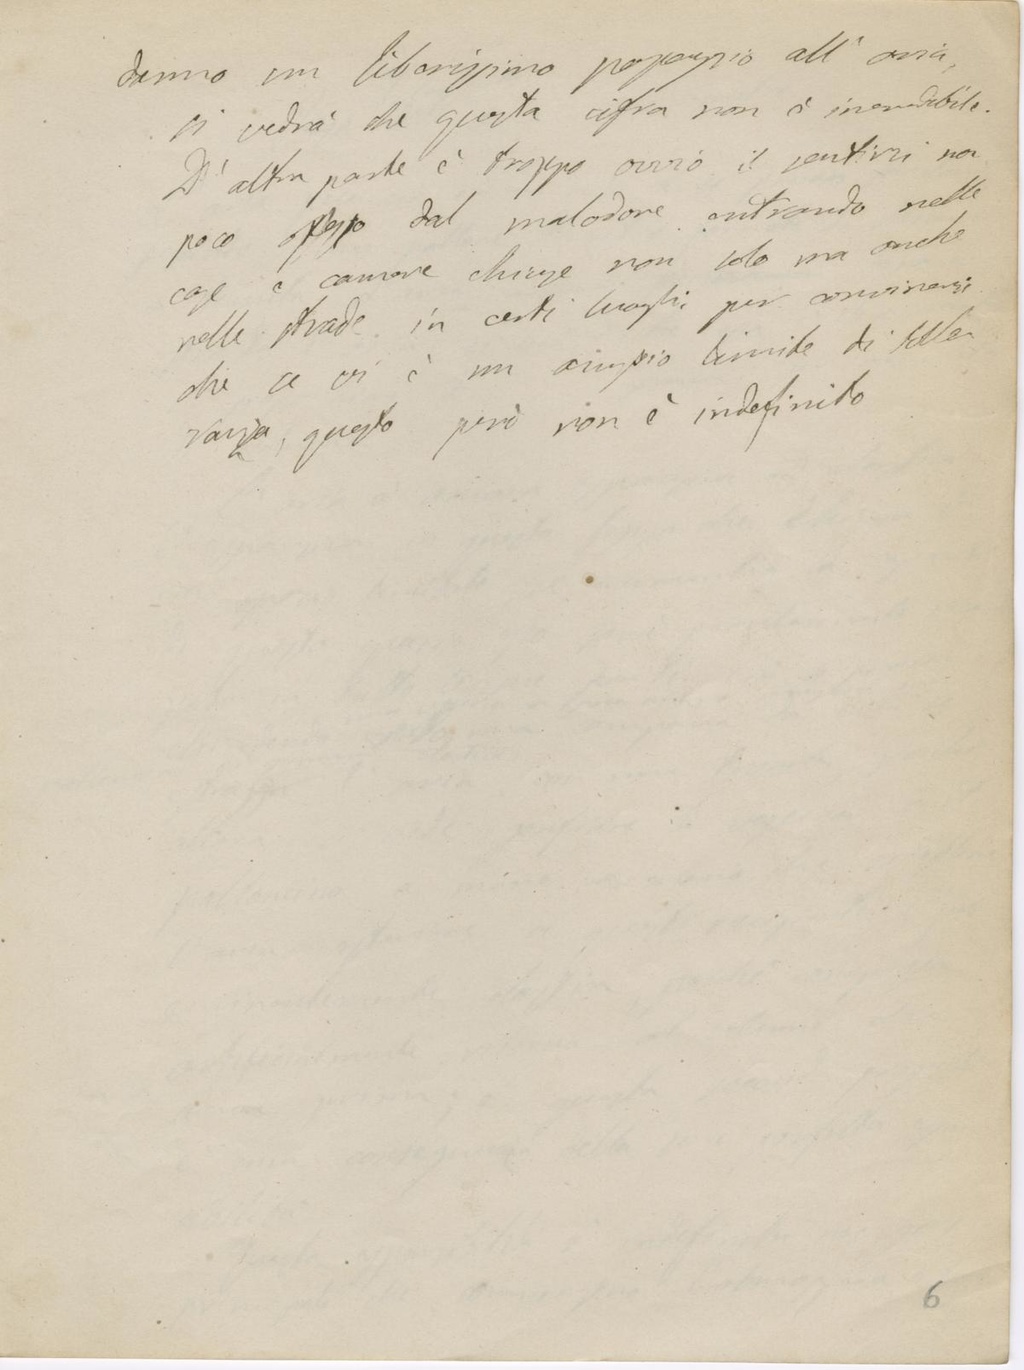 danno un liberissimo passaggio all' aria,
si vedrà che questa cifra non è incredibile.
D' altra parte è troppo ovvio il sentirsi non
poco offeso dal malodore entrando nelle
case e camere chiuse non solo ma anche
nelle strade in certi luoghi, per convincersi
che se vi è un ampio limite di tolle-
ranza, questo però non è indefinito
6